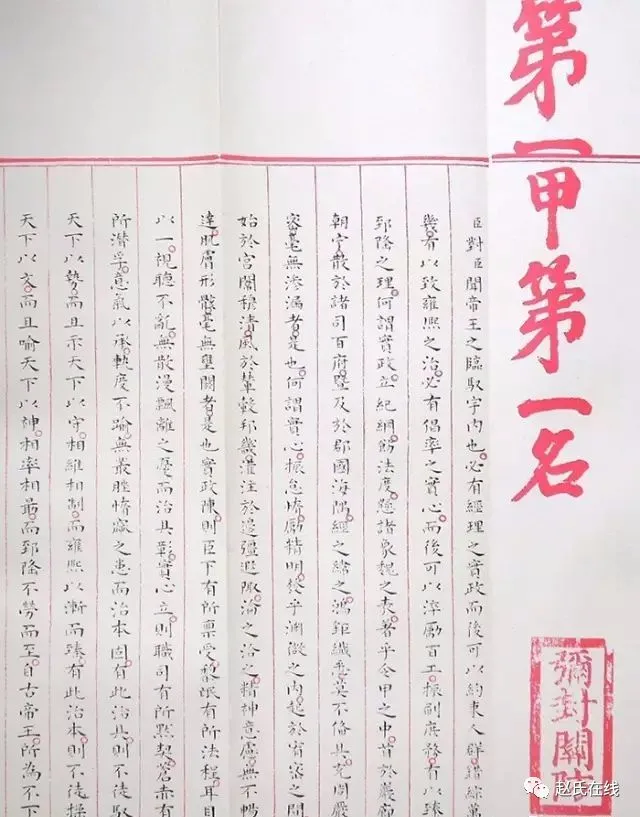 第一甲第一名
臣對臣聞帝王之臨馭宇內也必有經理之實政而後可以約束人群錯綜萬
幾有以致雍熙之治必有倡率之實心而後可以淬勵百工振刷庶務有以臻
郅隆之理何謂實政立紀綱飭法度懸諸象魏之表著乎令甲之中首於巖廊
朝宁散於諸司百府暨及於郡國海隅經之緯之鴻鉅纖悉莫不備具充周嚴
密毫無滲漏者是也何謂實心振怠惰勵精明發乎淵微之內起於宥密之間
始於宮闈穆清風於輦轂邦畿灌注於邊疆遐陬淪之洽之精神意慮無不暢
達肌膚形骸毫無壅閼者是也實政陳則臣下有所稟受黎氓有所法程耳目
以一視聽不亂無散漫飄離之憂而治具彰實心立則職司有所默契蒼赤有
所潛孚意氣以承軌度不踰無叢脞惰窳之患而治本固有此治具則不徒馭
天下以勢而且示天下以守相維相制而雍熙以漸而臻有此治本則不徒操
天下以文而且喻天下以神相率相勗而郅隆不勞而至自古帝王所為不下
彌封關防
赵氏在线